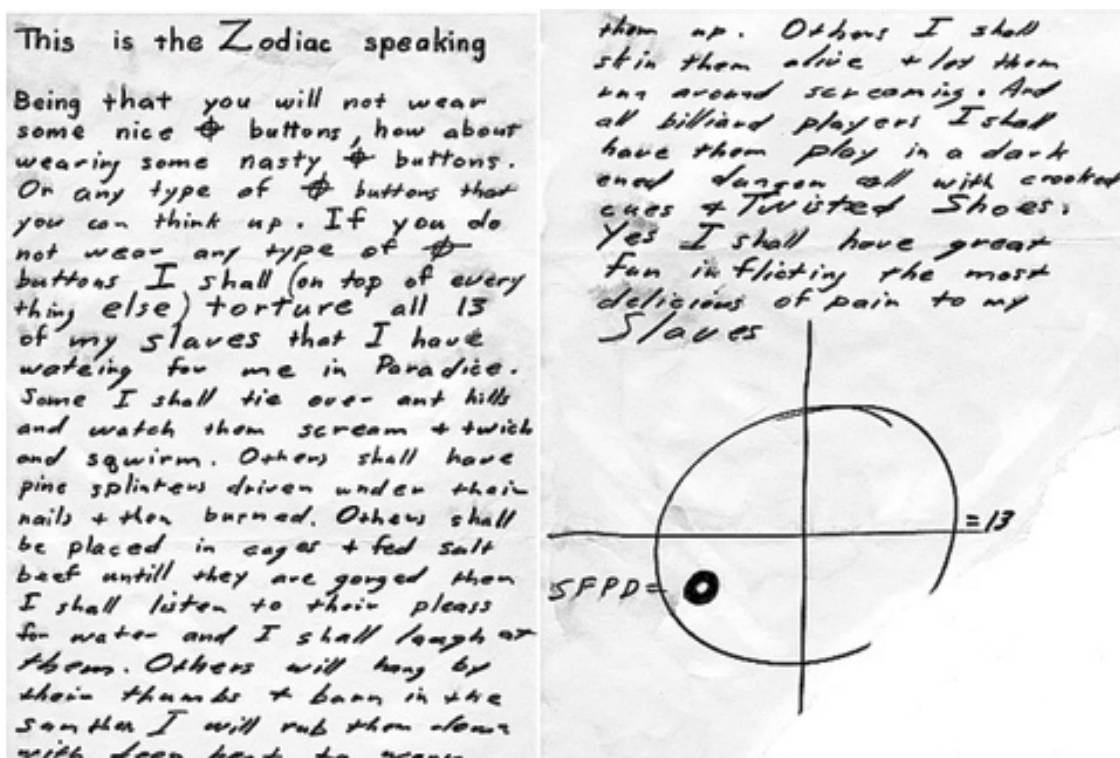 This is the Zodiac speaking
Being that you will not wear
some nice ⌖ buttons, how about
wearing some nasty ⌖ buttons.
Or any type of ⌖ buttons that
you can think up. If you do
not wear any type of ⌖
buttons I shall (on top of every
thing else) torture all 13
of my slaves that I have
wateing for me in Paradice.
Some I shall tie over ant hills
and watch them scream + twich
and squirm. Others shall have
pine splinters driven under their
nails + then burned. Others shall
be placed in cages + fed salt
beef untill they are gorged then
I shall listen to their pleass
for water and I shall laugh at
them. Others will hang by
their thumbs + burn in the
sun then I will rub them down
with deep heat to warm
them up. Others I shall
skin them alive + let them
run around screaming. And
all billiard players I shall
have them play in a dark
ened dungen cell with crooked
cues + Twisted Shoes.
Yes I shall have great
fun in flicting the most
delicious of pain to my
Slaves
= 13
SFPD =